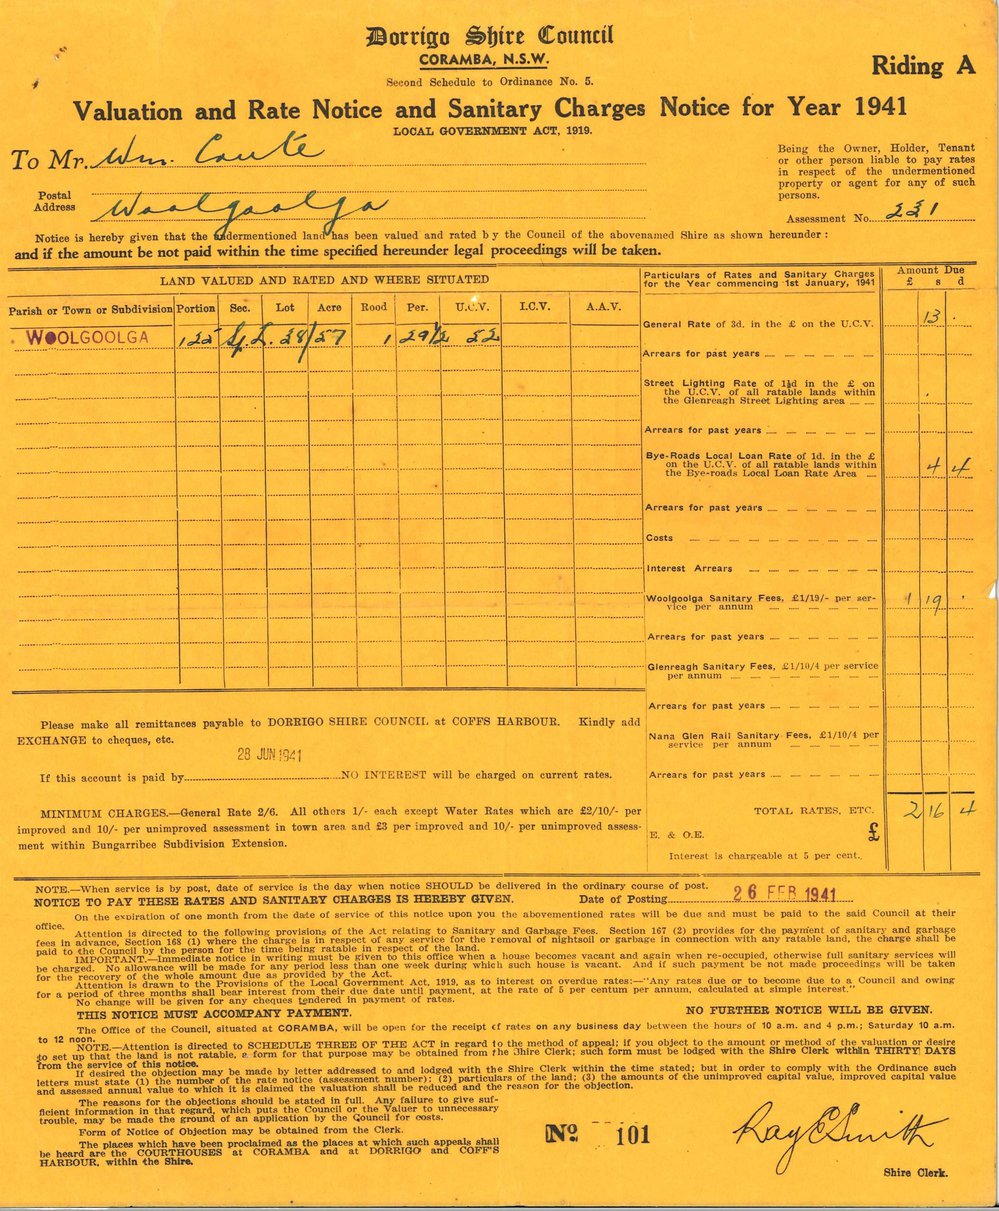 Dorrigo Shire Council
CORAMBA, N.S.W.
Riding A
Second Schedule to Ordinance No. 5.
Valuation and Rate Notice and Sanitary Charges Notice for Year 1941
LOCAL GOVERNMENT ACT, 1919.
To Mr. Wm. Couté
Being the Owner, Holder, Tenant
or other person liable to pay rates
in respect of the undermentioned
property or agent for any of such
persons.
Postal
Address Woolgoolga
Assessment No. 221
Notice is hereby given that the undermentioned land has been valued and rated by the Council of the abovenamed Shire as shown hereunder :
and if the amount be not paid within the time specified hereunder legal proceedings will be taken.
LAND VALUED AND RATED AND WHERE SITUATED
Particulars of Rates and Sanitary Charges
for the Year commencing 1st January, 1941
Amount Due
£ s d
Parish or Town or Subdivision Portion Sec. Lot Acre Rood Per. U.C.V. I.C.V. A.A.V.
WOOLGOOLGA 1 29½ 52
General Rate of 3d. in the £ on the U.C.V. 13 .
Arrears for past years
Street Lighting Rate of 1½d in the £ on
the U.C.V. of all ratable lands within
the Glenreagh Street Lighting area
Arrears for past years
Bye-Roads Local Loan Rate of 1d. in the £
on the U.C.V. of all ratable lands within
the Bye-roads Local Loan Rate Area 4 4
Arrears for past years
Costs
Interest Arrears
Woolgoolga Sanitary Fees, £1/19/- per ser-
vice per annum 1 19 .
Arrears for past years
Glenreagh Sanitary Fees, £1/10/4 per service
per annum
Arrears for past years
Nana Glen Rail Sanitary Fees, £1/10/4 per
service per annum
Arrears for past years
TOTAL RATES, ETC. 2 16 4
E. & O.E. £
Interest is chargeable at 5 per cent.
Please make all remittances payable to DORRIGO SHIRE COUNCIL at COFFS HARBOUR. Kindly add
EXCHANGE to cheques, etc.
28 JUN 1941
If this account is paid by NO INTEREST will be charged on current rates.
MINIMUM CHARGES.—General Rate 2/6. All others 1/- each except Water Rates which are £2/10/- per
improved and 10/- per unimproved assessment in town area and £3 per improved and 10/- per unimproved assess-
ment within Bungarribee Subdivision Extension.
NOTE.—When service is by post, date of service is the day when notice SHOULD be delivered in the ordinary course of post.
NOTICE TO PAY THESE RATES AND SANITARY CHARGES IS HEREBY GIVEN. Date of Posting 26 FEB 1941
On the expiration of one month from the date of service of this notice upon you the abovementioned rates will be due and must be paid to the said Council at their
office.
Attention is directed to the following provisions of the Act relating to Sanitary and Garbage Fees. Section 167 (2) provides for the payment of sanitary and garbage
fees in advance, Section 168 (1) where the charge is in respect of any service for the removal of nightsoil or garbage in connection with any ratable land, the charge shall be
paid to the Council by the person for the time being ratable in respect of the land.
IMPORTANT.—Immediate notice in writing must be given to this office when a house becomes vacant and again when re-occupied, otherwise full sanitary services will
be charged. No allowance will be made for any period less than one week during which such house is vacant. And if such payment be not made proceedings will be taken
for the recovery of the whole amount due as provided by the Act.
Attention is drawn to the Provisions of the Local Government Act, 1919, as to interest on overdue rates:—"Any rates due or to become due to a Council and owing
for a period of three months shall bear interest from their due date until payment, at the rate of 5 per centum per annum, calculated at simple interest."
No change will be given for any cheques tendered in payment of rates.
THIS NOTICE MUST ACCOMPANY PAYMENT. NO FURTHER NOTICE WILL BE GIVEN.
The Office of the Council, situated at CORAMBA, will be open for the receipt of rates on any business day between the hours of 10 a.m. and 4 p.m.; Saturday 10 a.m.
to 12 noon.
NOTE.—Attention is directed to SCHEDULE THREE OF THE ACT in regard to the method of appeal; if you object to the amount or method of the valuation or desire
to set up that the land is not ratable, a form for that purpose may be obtained from the Shire Clerk; such form must be lodged with the Shire Clerk within THIRTY DAYS
from the service of this notice.
If desired the objection may be made by letter addressed to and lodged with the Shire Clerk within the time stated; but in order to comply with the Ordinance such
letters must state (1) the number of the rate notice (assessment number); (2) particulars of the land; (3) the amounts of the unimproved capital value, improved capital value
and assessed annual value to which it is claimed the valuation shall be reduced and the reason for the objection.
The reasons for the objections should be stated in full. Any failure to give suf-
ficient information in that regard, which puts the Council or the Valuer to unnecessary
trouble, may be made the ground of an application by the Council for costs.
Form of Notice of Objection may be obtained from the Clerk.
The places which have been proclaimed as the places at which such appeals shall
be heard are the COURTHOUSES at CORAMBA and at DORRIGO and COFF'S
HARBOUR, within the Shire.
No 101
Ray E Smith
Shire Clerk.